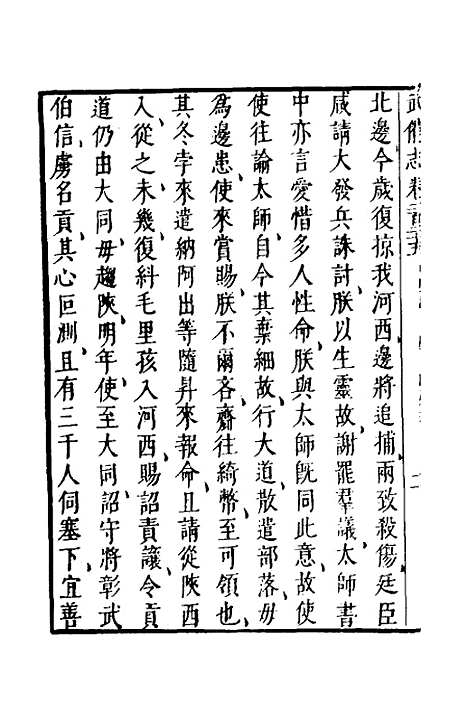 武備志卷二百二十五
北邊今歲復掠我河西邊將追捕兩致殺傷廷臣
咸請大發兵誅討朕以生靈故謝罷羣議太師書
中亦言愛惜多人性命朕與太師旣同此意故使
使往諭太師自今其棄細故行大道散遣部落毋
爲邊患使來賞賜朕不爾吝齎往綺幣至可領也
其冬孛來遣納阿出等隨昇來報命且請從陝西
入從之未幾復糾毛里孩入河西賜詔責讓令貢
道仍由大同毋趨陝明年使至大同詔守將彰武
伯信虜名貢其心叵測且有三千人伺塞下宜善